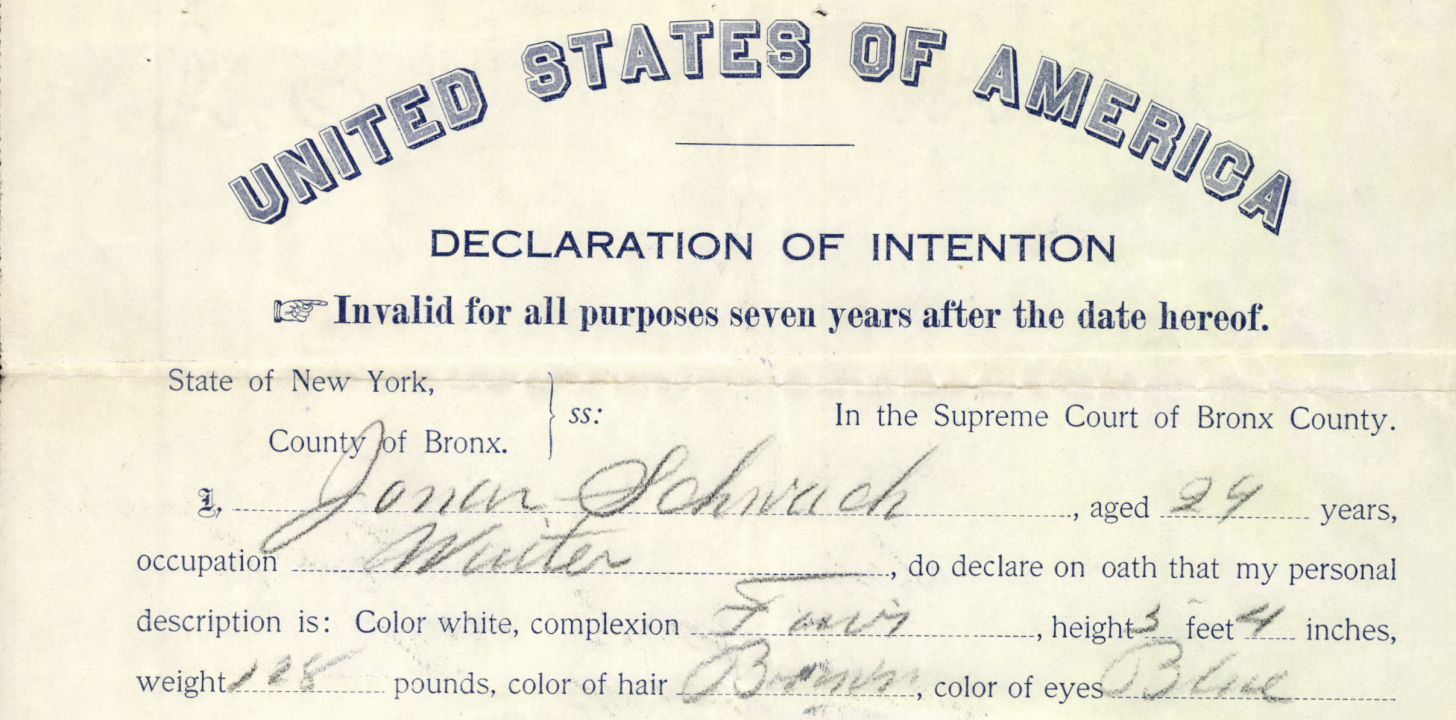 UNITED STATES OF AMERICA
DECLARATION OF INTENTION
Invalid for all purposes seven years after the date hereof.
State of New York,
County of Bronx.
ss:
In the Supreme Court of Bronx County.
I, Schwach, aged years,
occupation Waiter, do declare on oath that my personal
description is: Color white, complexion Fair, height feet 4 inches,
weight 128 pounds, color of hair Brown, color of eyes Blue